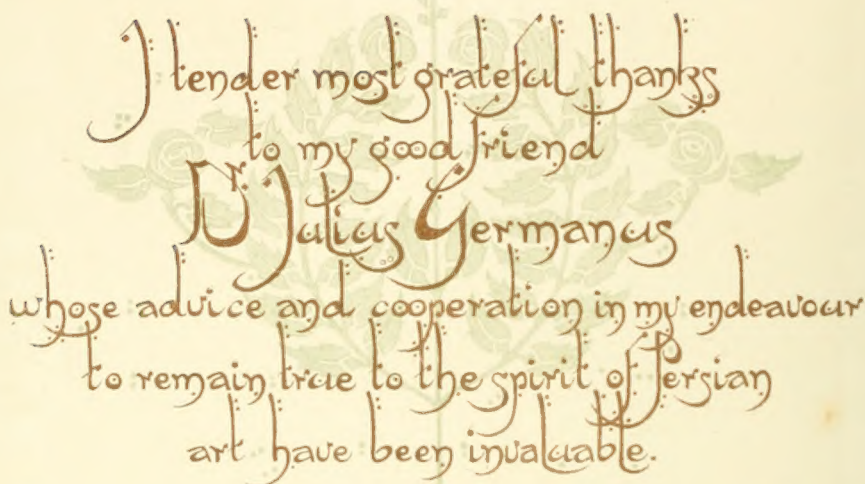 I tender most grateful thanks
to my good friend
Dr. Julius Germanus
whose advice and cooperation in my endeavour
to remain true to the spirit of Persian
art have been invaluable.